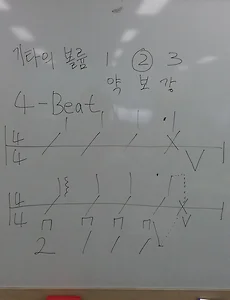 기타의 볼륨 1 ② 3
약 보 강
4-Beat
4
4
V
4
4
V
2